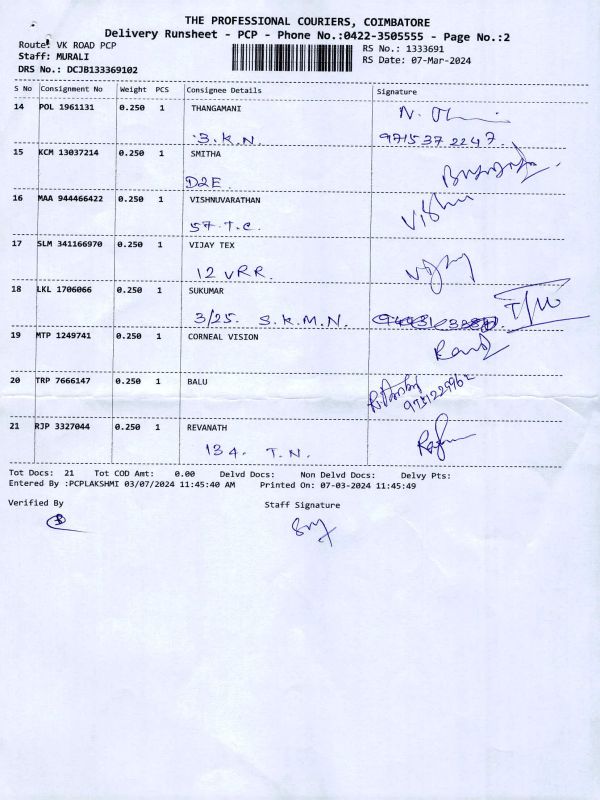 THE PROFESSIONAL COURIERS, COIMBATORE
Delivery Runsheet - PCP - Phone No.:0422-3505555 - Page No.:2
Route: VK ROAD PCP RS No.: 1333691
Staff: MURALI RS Date: 07-Mar-2024
DRS No.: DCJB133369102
S No Consignment No Weight PCS Consignee Details Signature
14 POL 1961131 0.250 1 THANGAMANI
3. K.N. 9715372247.
15 KCM 13037214 0.250 1 SMITHA
D2E
16 MAA 944466422 0.250 1 VISHNUVARATHAN Vishnu
57. T.C.
17 SLM 341166970 0.250 1 VIJAY TEX
12 VRR. Vijay
18 LKL 1706066 0.250 1 SUKUMAR
3/25. S.K.M.N.
19 MTP 1249741 0.250 1 CORNEAL VISION
20 TRP 7666147 0.250 1 BALU
21 RJP 3327044 0.250 1 REVANATH
134. T.N.
Tot Docs: 21 Tot COD Amt: 0.00 Delvd Docs: Non Delvd Docs: Delvy Pts:
Entered By :PCPLAKSHMI 03/07/2024 11:45:40 AM Printed On: 07-03-2024 11:45:49
Verified By Staff Signature